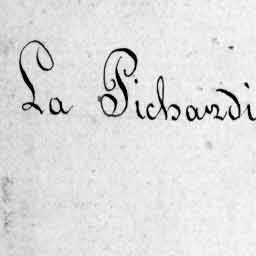 La Pichardi